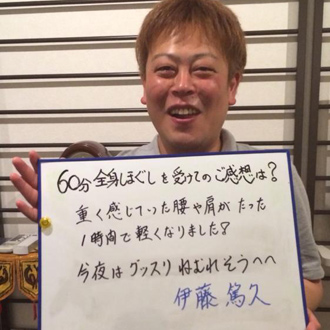 60分全身ほぐしを受けてのご感想は?
重く感じていった腰や肩がたった
1時間で軽くなりました?
今夜はグッスリねむれそうへへ
伊藤篤久